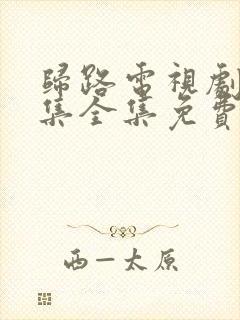 歸路電視劇
集全集免費
西一太原